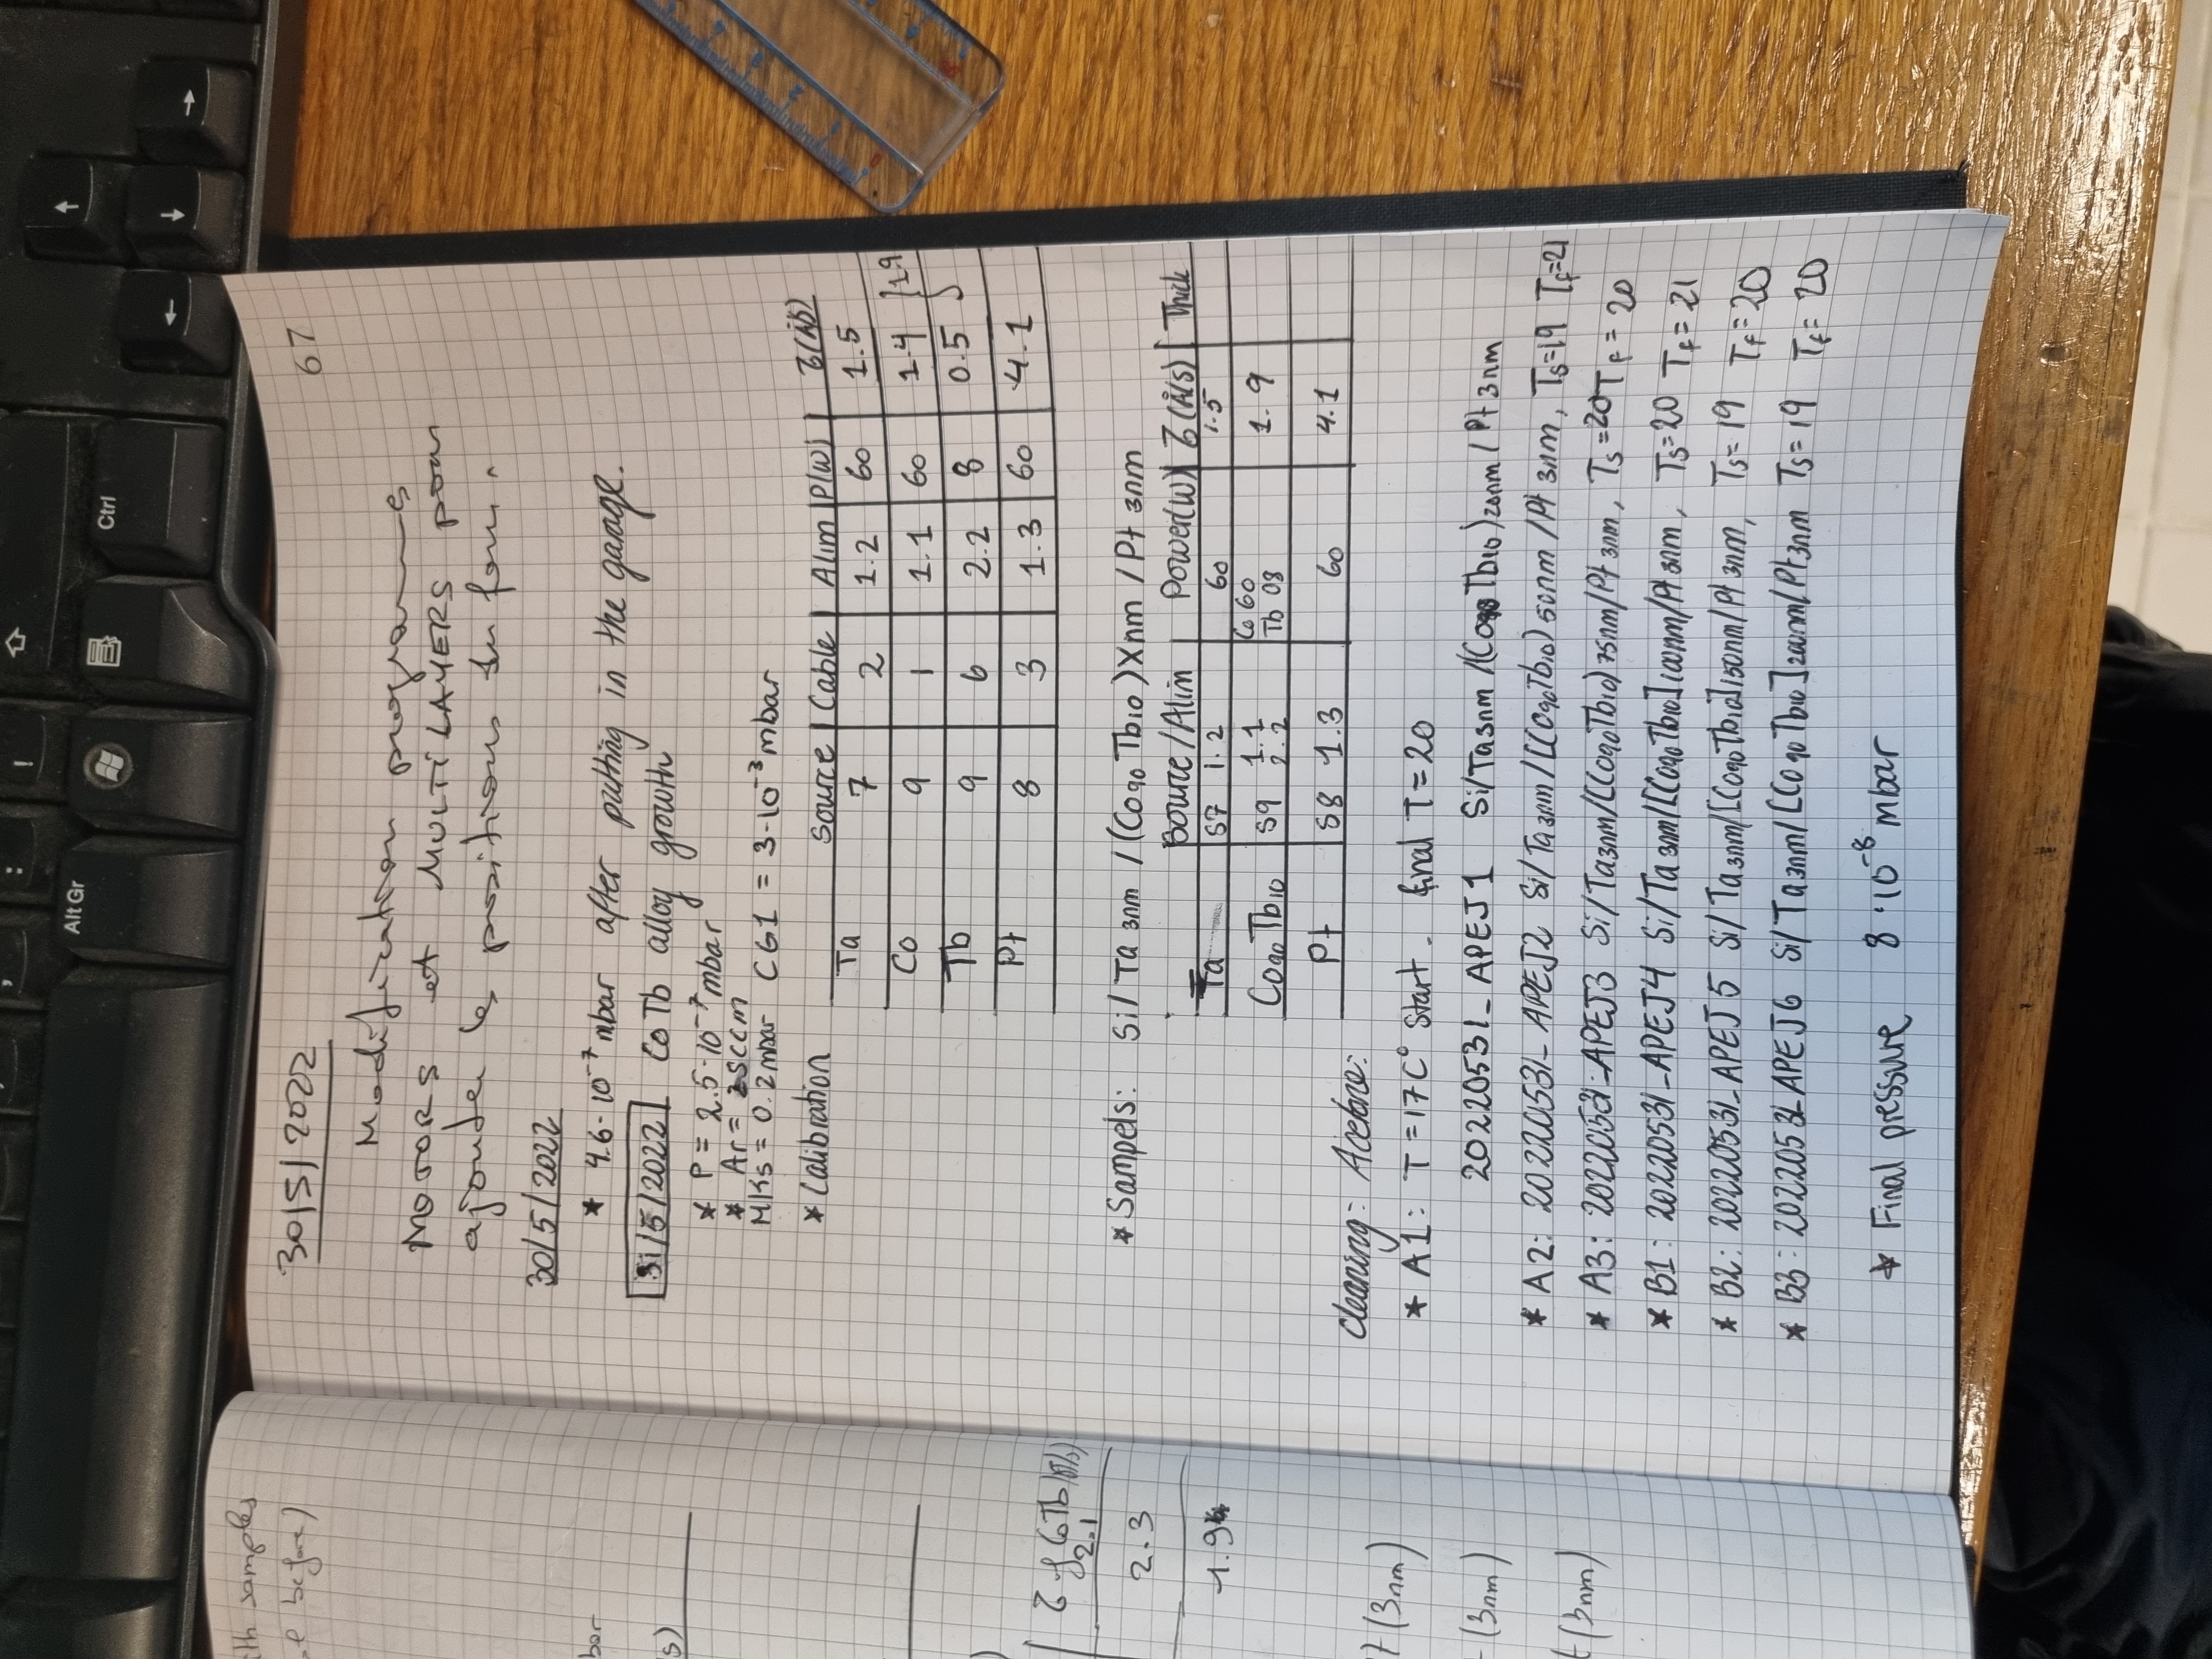 Alt Gr
Ctrl
th samples
before)
bar
s)
τ of CoTb (Å/s)
2.1
2.3
1.9
(3nm)
(3nm)
(3nm)
67
30/5/2022
Modification programmes
MOTORS et MULTILAYERS pour
ajouter les positions du four.
30/5/2022
* 4.6·10⁻⁷ mbar after putting in the garage.
31/5/2022 CoTb alloy growth
* P = 2.5·10⁻⁷ mbar
* Ar = sccm
MKs = 0.2 mbar CG1 = 3·10⁻³ mbar
* Calibration Source Cable Alim P(W) τ(Å/s)
Ta 7 2 1.2 60 1.5
Co 9 1 1.1 60 1.4 } 1.9
Tb 9 6 2.2 8 0.5
Pt 8 3 1.3 60 4.1
* Sampels: Si/Ta 3nm /(Co90Tb10)Xnm / Pt 3nm
Source/Alim Power(W) τ(Å/s) Thick
Ta S7 1.2 60 1.5
Co90Tb10 S9 1.1 2.2 Co 60 Tb 08 1.9
Pt S8 1.3 60 4.1
Cleaning: Acetone:
* A1: T=17C° start. final T=20
20220531_APEJ1 Si/Ta3nm/(Co90Tb10)20nm/Pt3nm
* A2: 20220531_APEJ2 Si/Ta3nm/[(Co90Tb10)50nm/Pt 3nm, Ts=19 Tf=21
* A3: 20220531_APEJ3 Si/Ta3nm/[(Co90Tb10)75nm/Pt 3nm, Ts=20 Tf=20
* B1: 20220531_APEJ4 Si/Ta 3nm/[Co90Tb10]100nm/Pt 3nm, Ts=20 Tf=21
* B2: 20220531_APEJ5 Si/Ta3nm/[Co90Tb10]150nm/Pt 3nm, Ts=19 Tf=20
* B3: 20220531_APEJ6 Si/Ta3nm/[Co90Tb10]200nm/Pt3nm Ts=19 Tf=20
* Final pressure 8·10⁻⁸ mbar